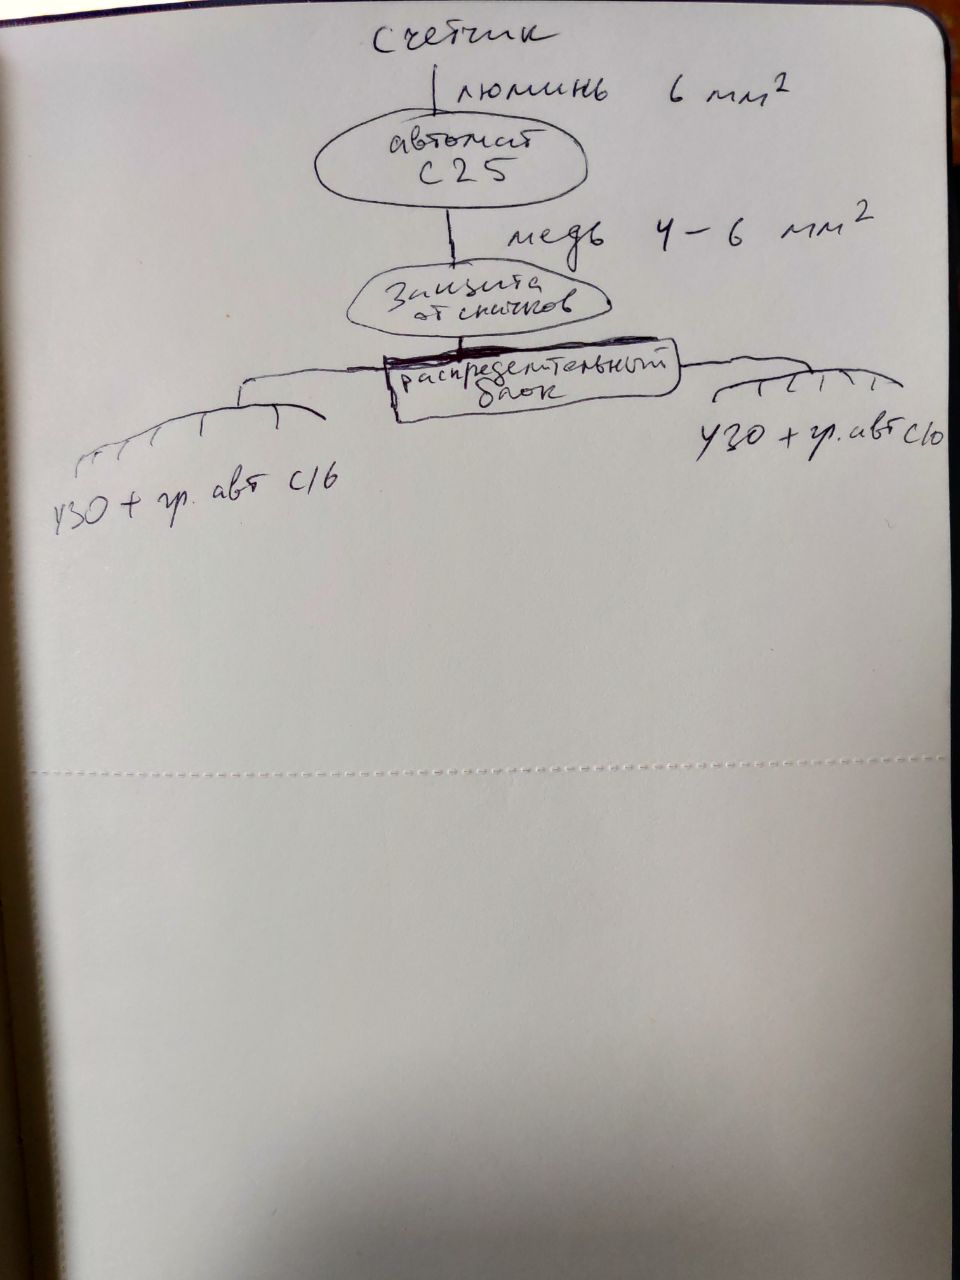 счетчик
люминь 6 мм²
автомат
С25
медь 4-6 мм²
Защита
от скачков
распределительный
блок
УЗО + гр. авт С10
УЗО + гр. авт С16